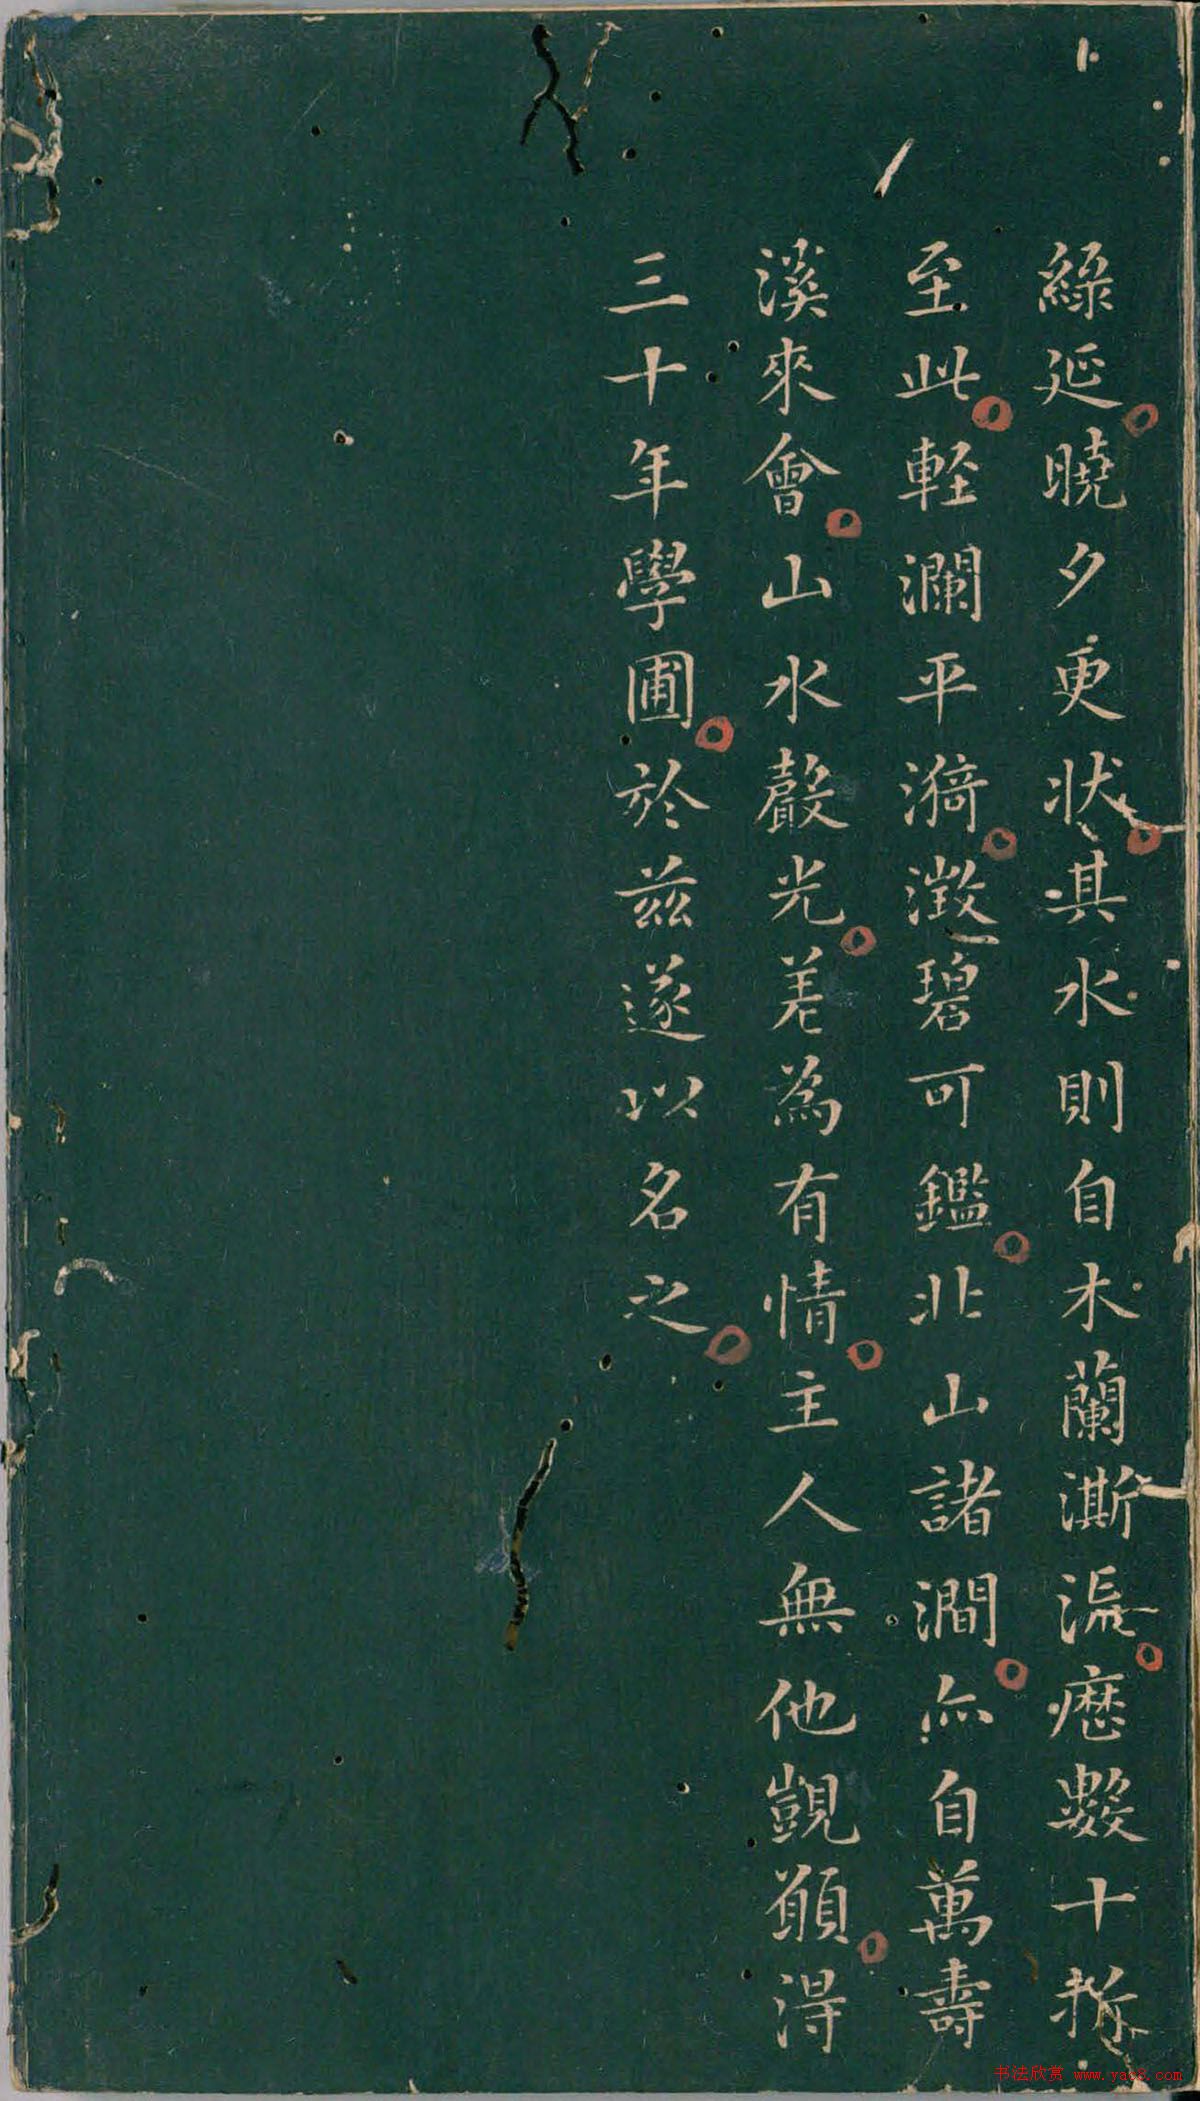 綠延曉夕更狀其水則自木蘭澌流歷數十折
至此輕瀾平漪澂碧可鑑北山諸澗亦自萬壽
溪來會山水聲光差為有情主人無他覬願得
三十年學圃於茲遂以名之
书法欣赏 www.yac8.com